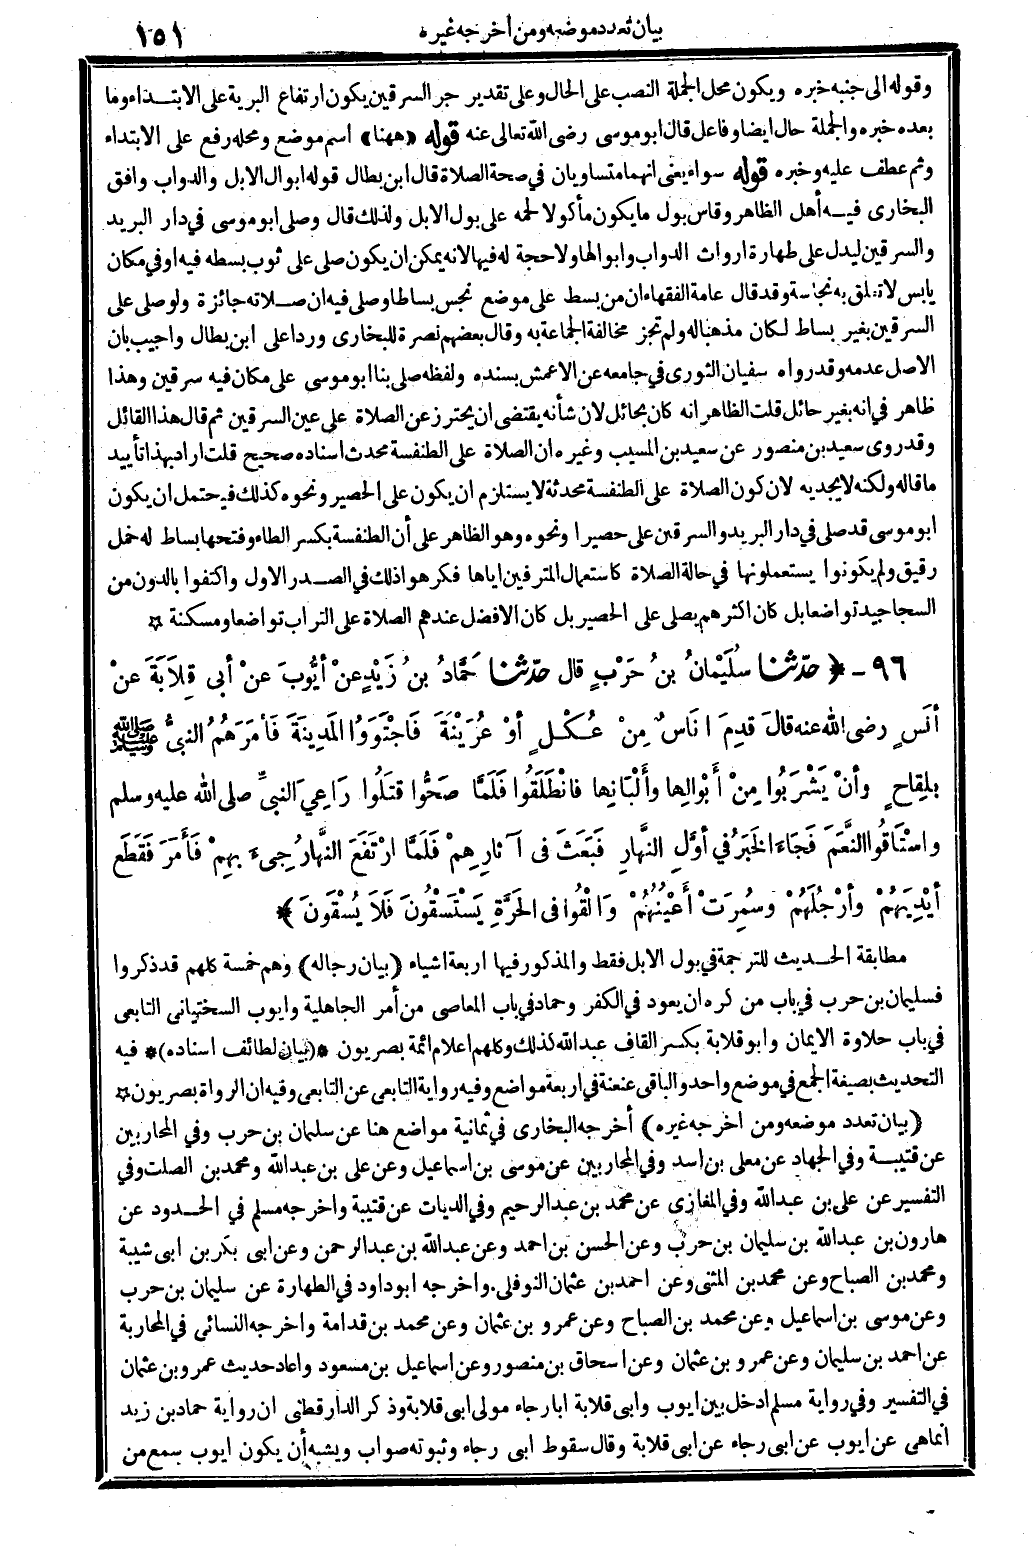 بيان تعدد موضعه ومن أخرجه غيره
١٥١
وقوله الى جنبه خبره ويكون محل الجملة النصب على الحال وعلى تقدير جر السرقين يكون ارتفاع البرية على الابتداء وما
بعده خبره والجملة حال ايضا وفاعل قال ابو موسى رضى الله تعالى عنه قوله «ههنا» اسم موضع ومحله رفع على الابتداء
وثم عطف عليه وخبره قوله سواء يعنى انهما متساويان في صحة الصلاة قال ابن بطال قوله ابوال الابل والدواب وافق
البخارى فيه أهل الظاهر وقاس بول ما يكون مأكولا لحمه على بول الابل ولذلك قال وصلى ابو موسى في دار البريد
والسرقين ليدل على طهارة ارواث الدواب وابوالها ولا حجة له فيها لانه يمكن ان يكون صلى على ثوب بسطه فيه او في مكان
يابس لا تعلق به نجاسة وقد قال عامة الفقهاء ان من بسط على موضع نجس بساطا وصلى فيه ان صلاته جائزة ولو صلى على
السرقين بغير بساط لكان مذهبا له ولم تجز مخالفة الجماعة به وقال بعضهم نصرة للبخارى وردا على ابن بطال واجيب بان
الاصل عدمه وقد رواه سفيان الثورى في جامعه عن الاعمش بسنده ولفظه صلى بنا ابو موسى على مكان فيه سرقين وهذا
ظاهر في انه بغير حائل قلت الظاهر انه كان بحائل لان شأنه يقتضى ان يحترز عن الصلاة على عين السرقين ثم قال هذا القائل
وقد روى سعيد بن منصور عن سعيد بن المسيب وغيره ان الصلاة على الطنفسة محدث اسناده صحيح قلت اراد بهذا تأييد
ما قاله ولكنه لا يجديه لان كون الصلاة على الطنفسة محدثة لا يستلزم ان يكون على الحصير ونحوه كذلك فيحتمل ان يكون
ابو موسى قد صلى في دار البريد والسرقين على حصير او نحوه وهو الظاهر على أن الطنفسة بكسر الطاء وفتحها بساط له خمل
رقيق ولم يكونوا يستعملونها في حالة الصلاة كاستعمال المترفين اياها فكرهوا ذلك في الصدر الاول واكتفوا بالدون من
السجاجيد تواضعا بل كان اكثرهم يصلى على الحصير بل كان الافضل عندهم الصلاة على التراب تواضعا ومسكنة ☆
٩٦ - ﴿ حدّثنا سُلَيْمانُ بنُ حَرْبٍ قال حدّثنا حَمَّادُ بنُ زَيْدٍ عنْ أيُّوبَ عنْ أبى قِلاَبَةَ عنْ
أنَسٍ رضى الله عنه قالَ قَدِمَ اناسٌ مِنْ عُكْلٍ أوْ عُرَيْنَةَ فَاجْتَوَوُا المَدِينَةَ فَأمَرَهُمُ النبىُّ ﷺ
بلِقاحٍ وأنْ يَشْرَبُوا مِنْ أبْوالِها وألْبَانِها فانْطَلَقُوا فَلَمَّا صَحُّوا قتَلُوا رَاعِىَ النبىِّ صلى الله عليه وسلم
واسْتَاقُوا النَّعَمَ فَجَاءَ الخَبَرُ في أوَّلِ النَّهارِ فَبَعَثَ فى آثارِهِمْ فَلَمَّا ارْتَفَعَ النَّهارُ جِىءَ بِهِمْ فَأَمَرَ فَقَطَع
أيْدِيَهُمْ وأرْجُلَهُمْ وسُمِرَتْ أعْيُنُهُمْ وَالْقُوا فى الحَرَّةِ يَسْتَسْقُونَ فَلاَ يُسْقَونَ ﴾
مطابقة الحديث للترجمة في بول الابل فقط والمذكور فيها اربعة اشياء (بيان رجاله) وهم خمسة كلهم قد ذكروا
فسليمان بن حرب في باب من كره ان يعود في الكفر وحماد في باب المعاصى من أمر الجاهلية وايوب السختيانى التابعى
في باب حلاوة الايمان وابو قلابة بكسر القاف عبد الله كذلك وكلهم اعلام ائمة بصريون *(بيان لطائف اسناده)* فيه
التحديث بصيغة الجمع في موضع واحد والباقى عنعنة في اربعة مواضع وفيه رواية التابعى عن التابعى وفيه ان الرواة بصريون ☆
(بيان تعدد موضعه ومن اخرجه غيره) أخرجه البخارى في ثمانية مواضع هنا عن سلمان بن حرب وفي المحاربين
عن قتيبة وفي الجهاد عن معلى بن اسد وفي المحاربين عن موسى بن اسماعيل وعن على بن عبدالله ومحمد بن الصلت وفي
التفسير عن على بن عبدالله وفي المغازى عن محمد بن عبد الرحيم وفي الديات عن قتيبة واخرجه مسلم في الحدود عن
هارون بن عبدالله بن سليمان بن حرب وعن الحسن بن احمد وعن عبدالله بن عبد الرحمن وعن ابى بكر بن ابى شيبة
ومحمد بن الصباح وعن محمد بن المثنى وعن احمد بن عثمان النوفلى. واخرجه ابو داود في الطهارة عن سليمان بن حرب
وعن موسى بن اسماعيل وعن محمد بن الصباح وعن عمرو بن عثمان وعن محمد بن قدامة واخرجه النسائى في المحاربة
عن احمد بن سليمان وعن عمرو بن عثمان وعن اسحاق بن منصور وعن اسماعيل بن مسعود واعاد حديث عمرو بن عثمان
في التفسير وفي رواية مسلم ادخل بين ايوب وابى قلابة ابا رجاء مولى ابى قلابة وذكر الدارقطنى ان رواية حماد بن زيد
انما هى عن ايوب عن ابى رجاء عن ابى قلابة وقال سقوط ابى رجاء وثبوته صواب ويشبه أن يكون ايوب سمع من